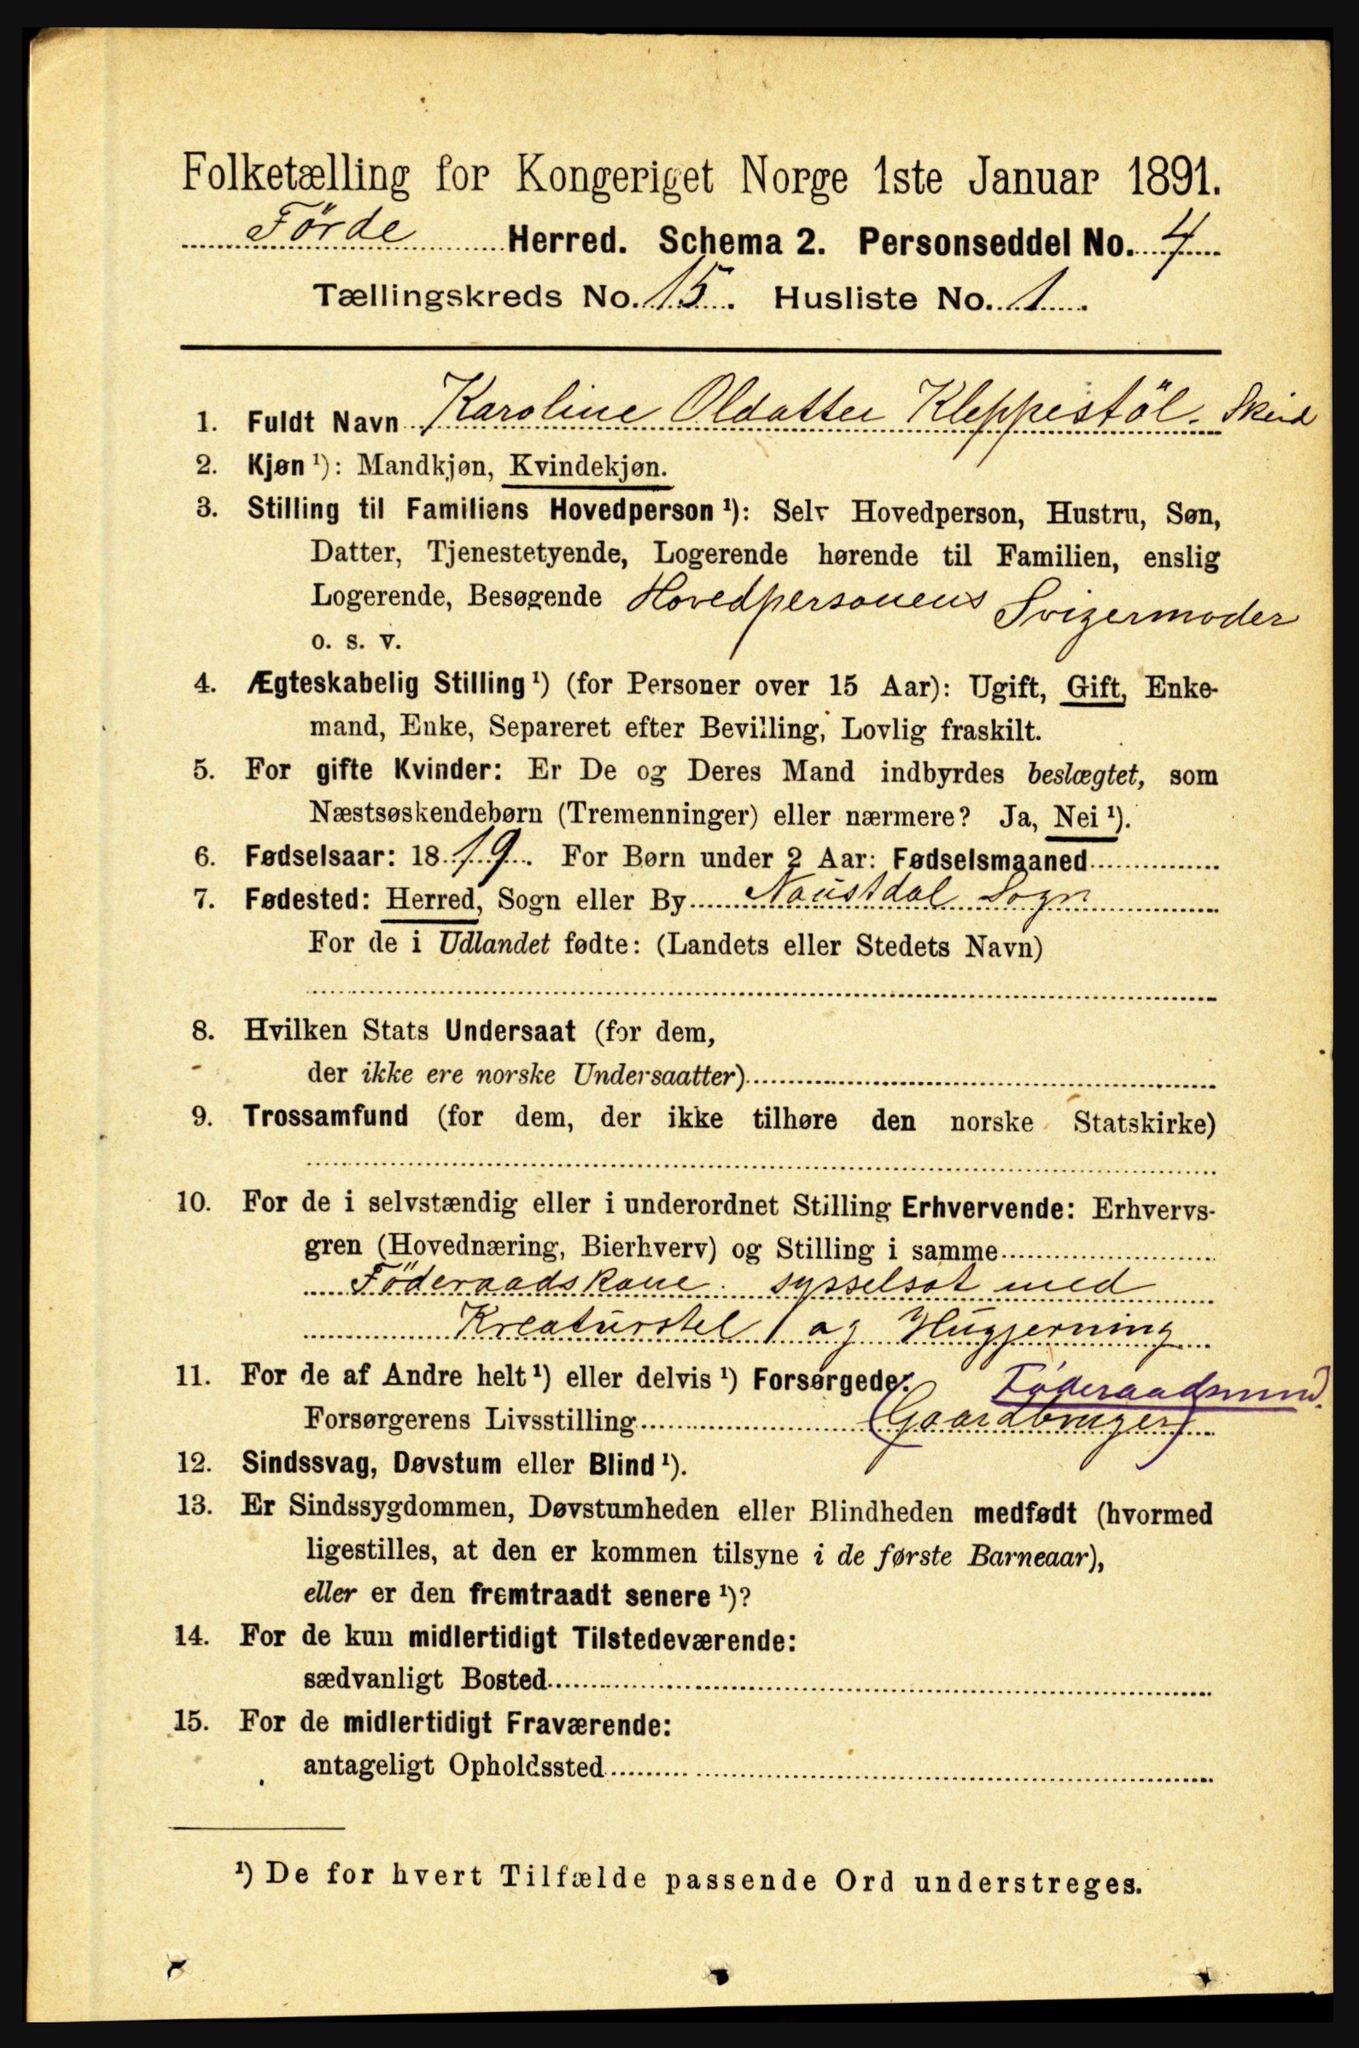 Folketælling for Kongeriget Norge 1ste Januar 1891.
Förde Herred. Schema 2. Personseddel No. 4
Tællingskreds No. 15. Husliste No. 1
1. Fuldt Navn Karoline Oldatter Kleppestöl.
2. Kjøn ¹): Mandkjøn, Kvindekjøn.
3. Stilling til Familiens Hovedperson ¹): Selv Hovedperson, Hustru, Søn,
Datter, Tjenestetyende, Logerende hørende til Familien, enslig
Logerende, Besøgende Hovedpersonens Svigermoder
o. s. v.
4. Ægteskabelig Stilling ¹) (for Personer over 15 Aar): Ugift, Gift, Enke-
mand, Enke, Separeret efter Bevilling, Lovlig fraskilt.
5. For gifte Kvinder: Er De og Deres Mand indbyrdes beslægtet, som
Næstsøskendebørn (Tremenninger) eller nærmere? Ja, Nei ¹).
6. Fødselsaar: 1819. For Børn under 2 Aar: Fødselsmaaned
7. Fødested: Herred, Sogn eller By Naustdal Sogn
For de i Udlandet fødte: (Landets eller Stedets Navn)
8. Hvilken Stats Undersaat (for dem,
der ikke ere norske Undersaatter)
9. Trossamfund (for dem, der ikke tilhøre den norske Statskirke)
10. For de i selvstændig eller i underordnet Stilling Erhvervende: Erhvervs-
gren (Hovednæring, Bierhverv) og Stilling i samme
Föderaadskone sysselsat med
Kreaturstel og Husgjerning
11. For de af Andre helt ¹) eller delvis ¹) Forsørgede: Föderaadsmand
Forsørgerens Livsstilling (Gaardbruger)
12. Sindssvag, Døvstum eller Blind ¹).
13. Er Sindssygdommen, Døvstumheden eller Blindheden medfødt (hvormed
ligestilles, at den er kommen tilsyne i de første Barneaar),
eller er den fremtraadt senere ¹)?
14. For de kun midlertidigt Tilstedeværende:
sædvanligt Bosted
15. For de midlertidigt Fraværende:
antageligt Opholdssted
¹) De for hvert Tilfælde passende Ord understreges.